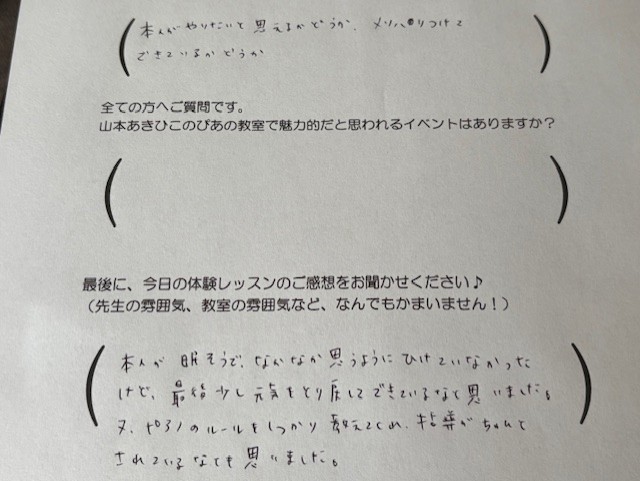 (本人がやりたいと思えるかどうか、メリハリつけて
できているかどうか)
全ての方へご質問です。
山本あきひこのぴあの教室で魅力的だと思われるイベントはありますか？
( )
最後に、今日の体験レッスンのご感想をお聞かせください♪
（先生の雰囲気、教室の雰囲気など、なんでもかまいません！）
(本人が眠そうで、なかなか思うようにひけていなかった
けど、最後少し元気をとり戻してできているなと思いました。
又、ピアノのルールをしっかり教えてくれ、指導がちゃんと
されているなても思いました。)